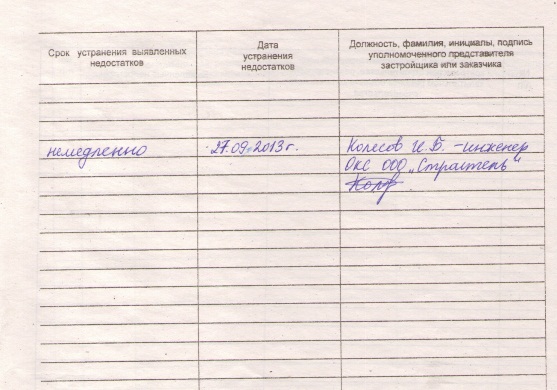 Срок устранения выявленных
недостатков
Дата
устранения
недостатков
Должность, фамилия, инициалы, подпись
уполномоченного представителя
застройщика или заказчика
немедленно
27.09.2013г.
Колесов И.Б. -инженер
ОКС ООО „Строитель"